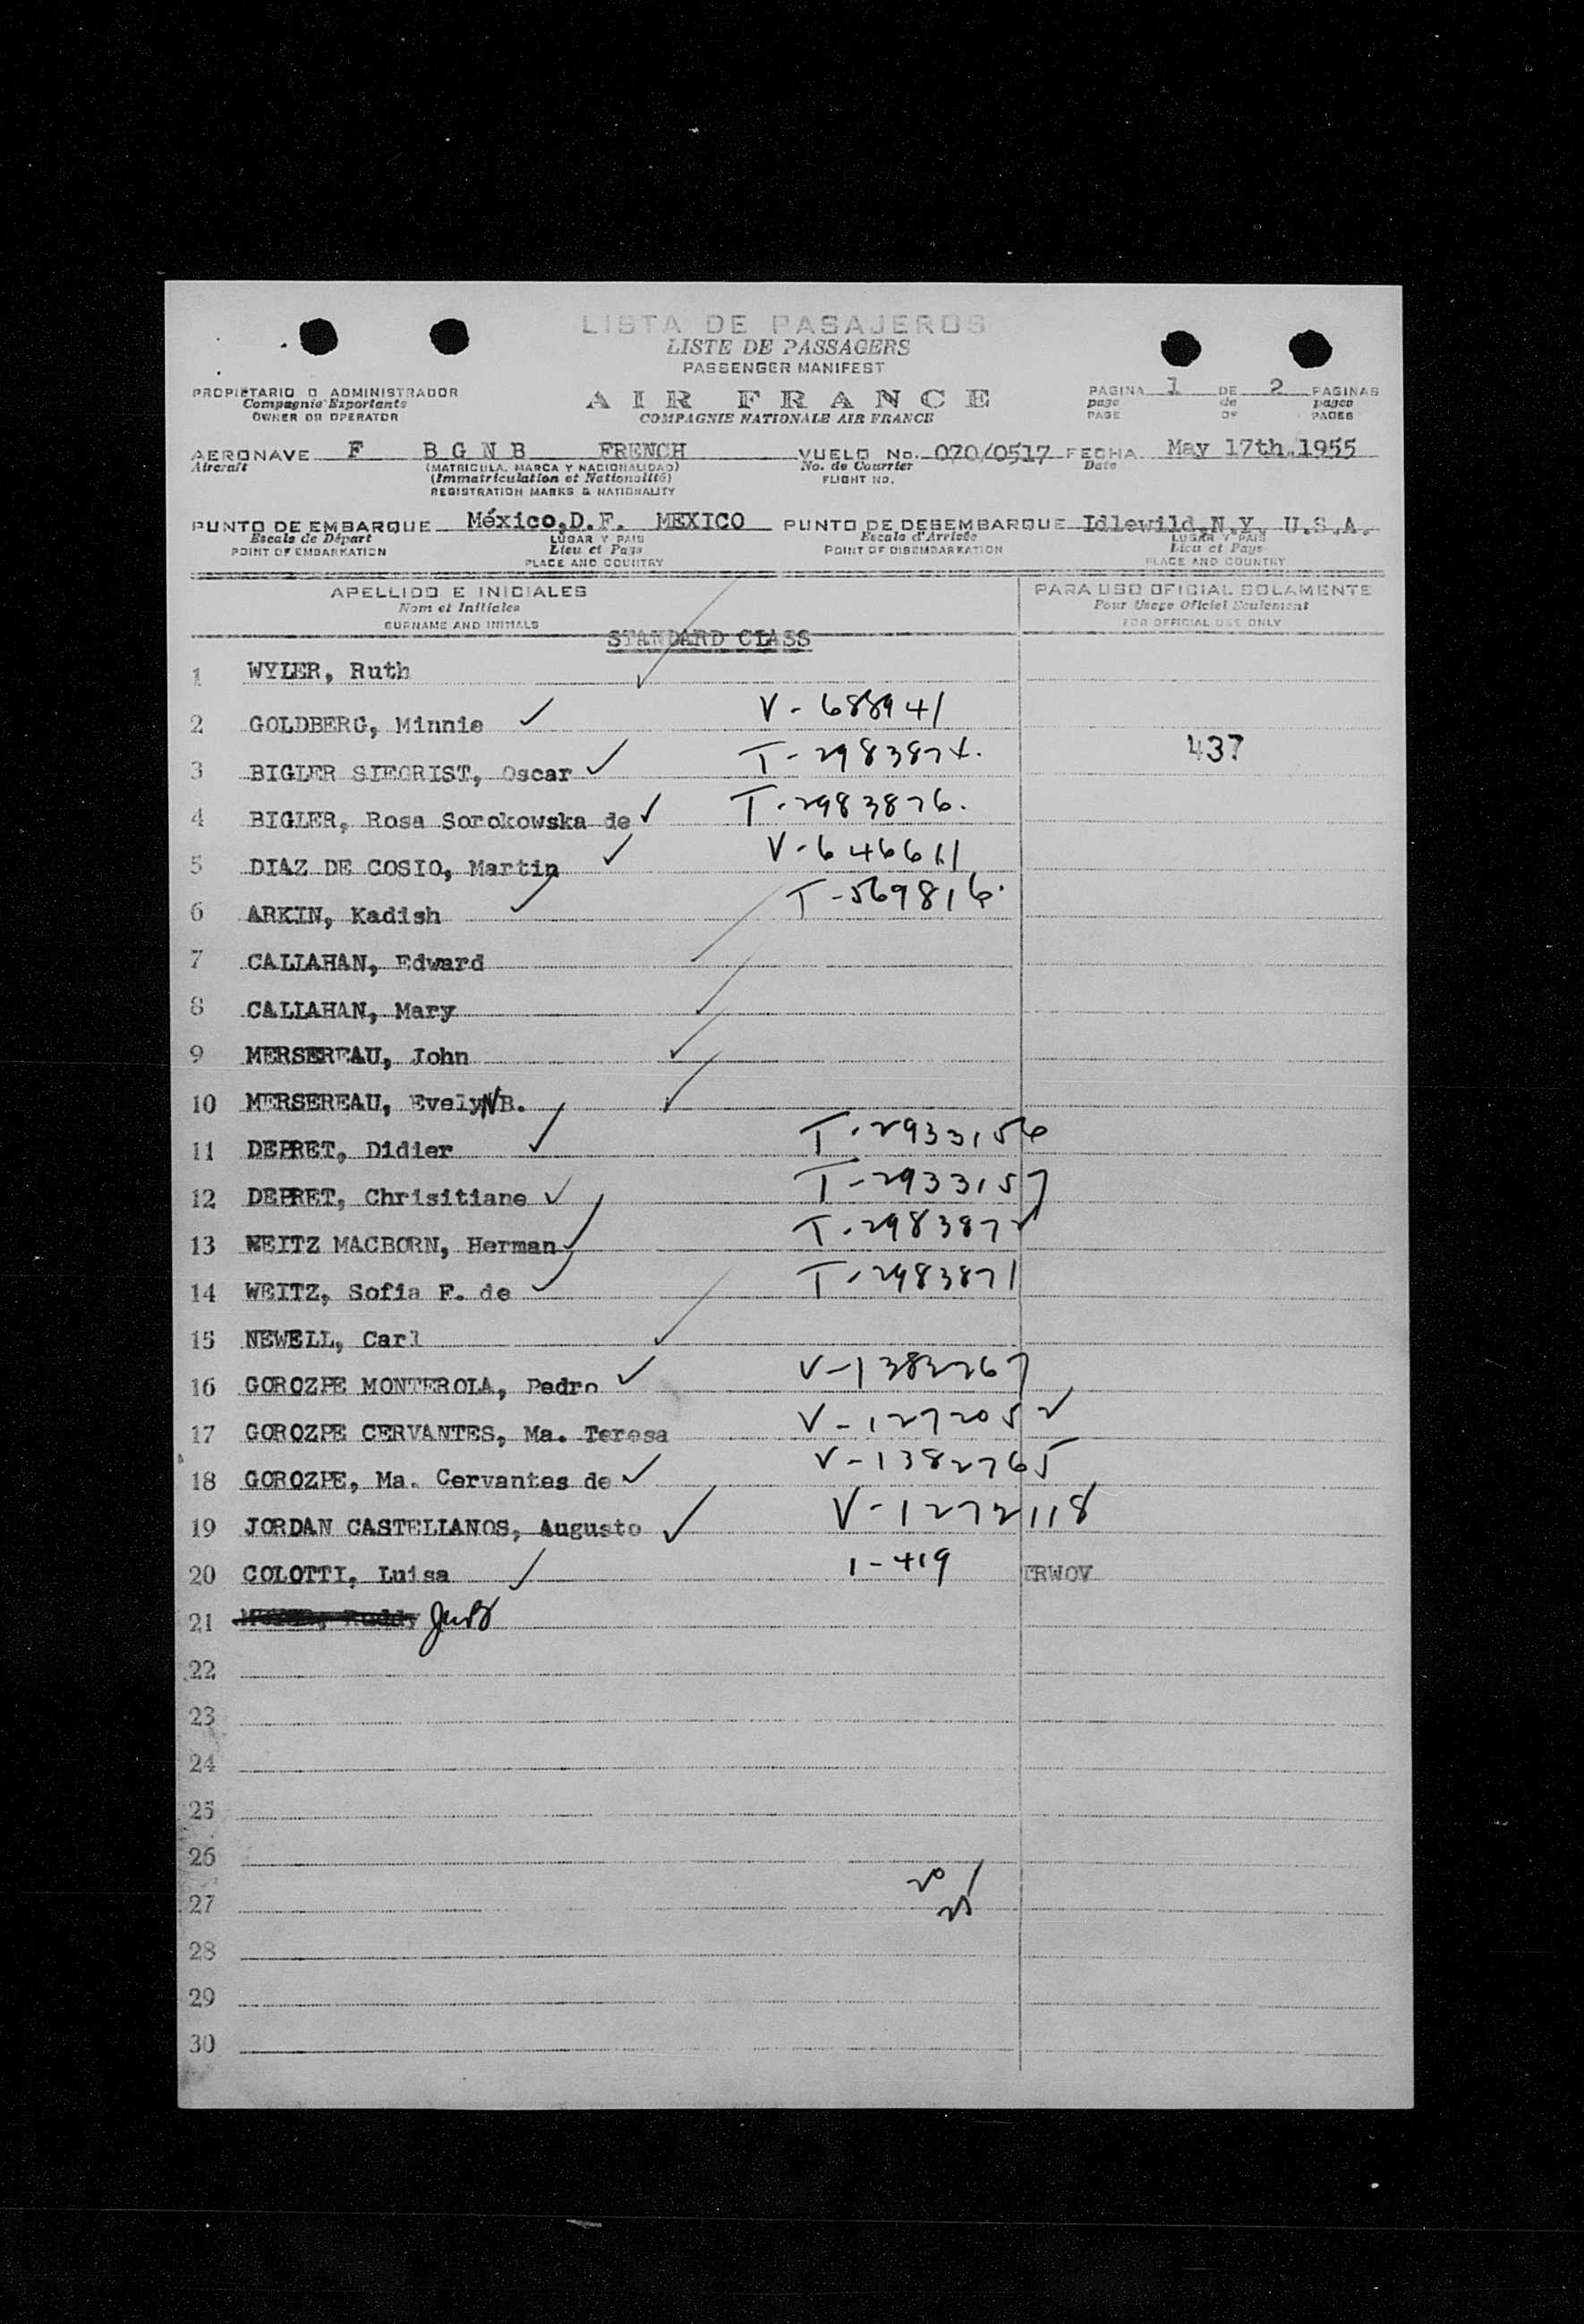 LISTA DE PASAJEROS
LISTE DE PASSAGERS
PASSENGER MANIFEST
PROPIETARIO O ADMINISTRADOR
Compagnie Exportante
OWNER OR OPERATOR
AIR FRANCE
COMPAGNIE NATIONALE AIR FRANCE
PAGINA 1 DE 2 PAGINAS
page de pages
PAGE OF PAGES
AERONAVE F B G N B FRENCH VUELO No. 070/0517 FECHA May 17th.1955
Aircraft (MATRICULA, MARCA Y NACIONALIDAD) No. de Courrier Date
(Immatriculation et Nationalité) FLIGHT NO.
REGISTRATION MARKS & NATIONALITY
PUNTO DE EMBARQUE México,D.F. MEXICO PUNTO DE DESEMBARQUE Idlewild,N.Y. U.S.A.
Escale de Départ LUGAR Y PAIS Escale d'Arrivée LUGAR Y PAIS
POINT OF EMBARKATION Lieu et Pays POINT OF DISEMBARKATION Lieu et Pays
PLACE AND COUNTRY PLACE AND COUNTRY
APELLIDO E INICIALES PARA USO OFICIAL SOLAMENTE
Nom et Initiales Pour Usage Oficiel Seulement
SURNAME AND INITIALS FOR OFFICIAL USE ONLY
STANDARD CLASS
1 WYLER, Ruth
2 GOLDBERG, Minnie V-688941
3 BIGLER SIEGRIST, Oscar T-2983874. 437
4 BIGLER, Rosa Sorokowska de T-2983876.
5 DIAZ DE COSIO, Martin V-646611
6 ARKIN, Kadish T-569816.
7 CALLAHAN, Edward
8 CALLAHAN, Mary
9 MERSEREAU, John
10 MERSEREAU, EvelyN B.
11 DEPRET, Didier T-2933156
12 DEPRET, Chrisitiane T-2933157
13 WEITZ MACBORN, Herman T-2983872
14 WEITZ, Sofia F. de T-2983871
15 NEWELL, Carl
16 GOROZPE MONTEROLA, Pedro V-1382767
17 GOROZPE CERVANTES, Ma. Teresa V-1272052
18 GOROZPE, Ma. Cervantes de V-1382765
19 JORDAN CASTELLANOS, Augusto V-1272118
20 COLOTTI, Luisa 1-419 TRWOV
21
22
23
24
25
26
27
28
29
30